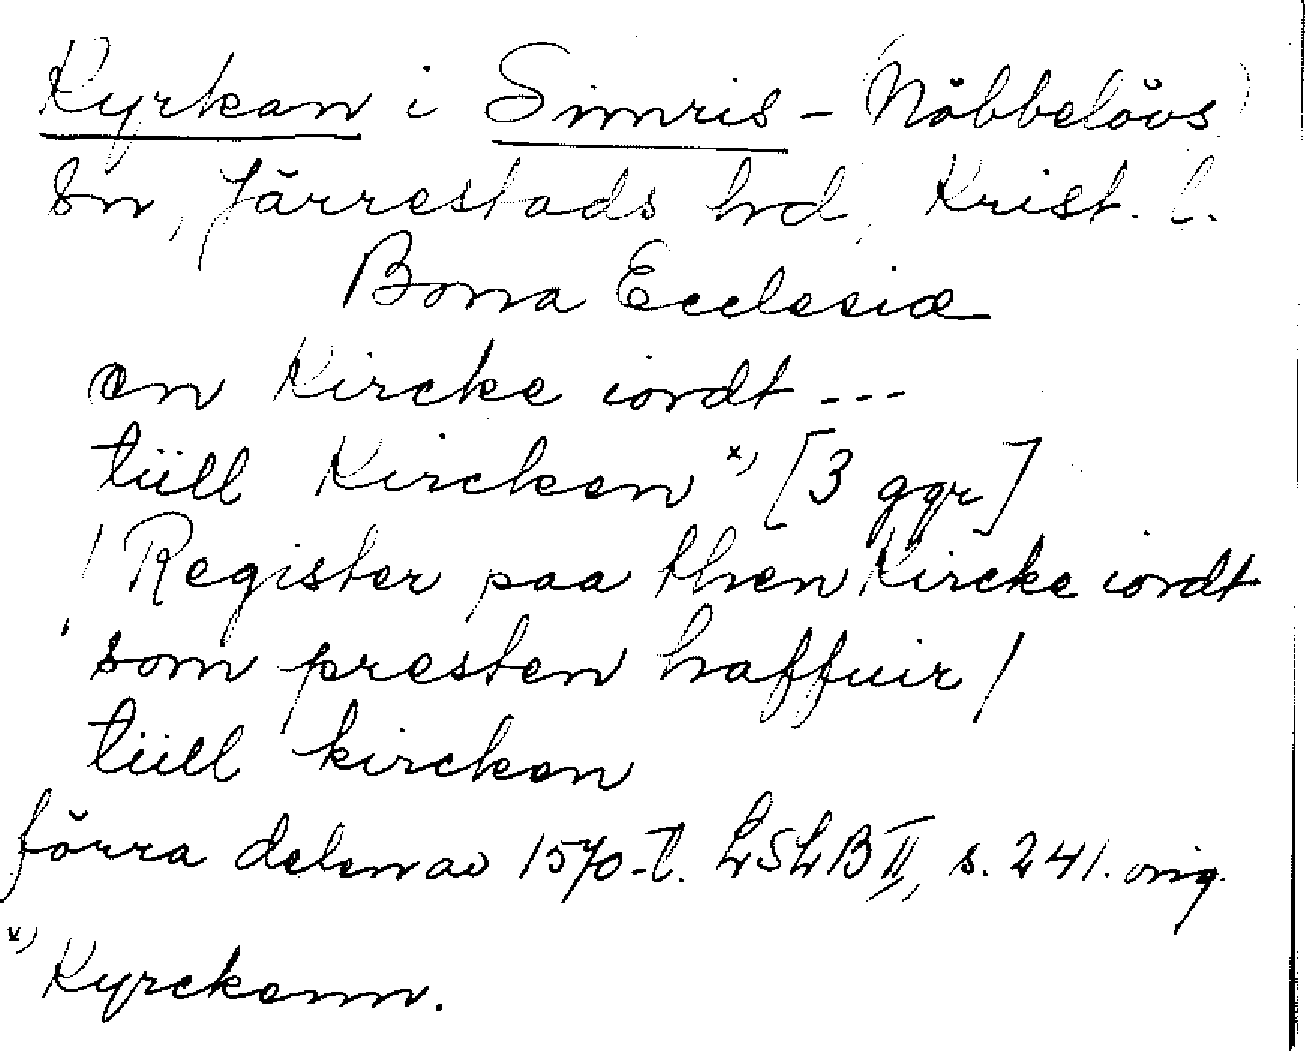 Kyrkan i Simris - (Nöbbelövs)
sn, Järrestads hd, Krist. l.
Bona Ecclesiæ
en Kircke iordt ---
tiill Kircken x) [3 ggr]
/ Register paa then Kircke iordt
som presten haffuir /
tiill kircken
förra delen av 1570-t. LSLB II, s. 241. orig.
x) Kyrckenn.